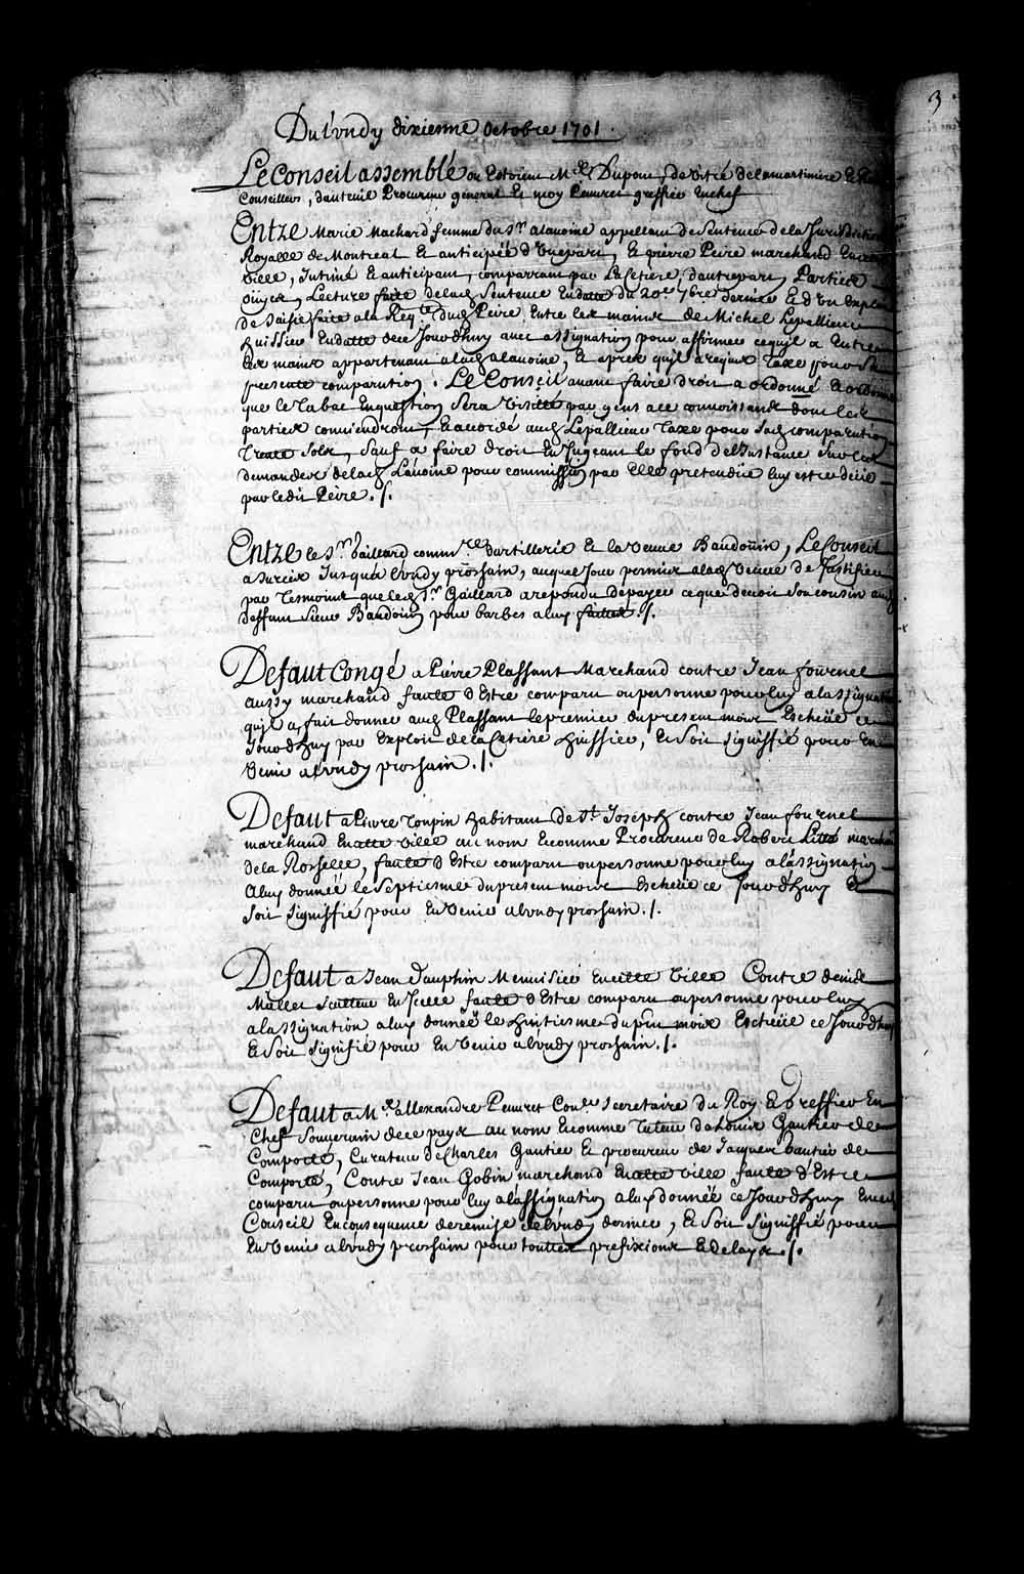 3.
Du Lundy dixiesme octobre 1701.
Le Conseil assemblé ou Estoient Mrs Dupont, de Vitré de la martiniere
Conseillers, dauteüil Procureur general Et moy Peuvret greffier Enchef
Entre Marie Machard femme du Sr alavoine appellant de Sentence de la Jurisdiction
Royalle de Montreal Et anticipée d'Unepart, Et pierre Peire marchand En cette
Ville, Intimé Et anticipant, comparant par La Cetiere, dautrepart, Parties
oüyes, Lecture faite delad Sentence Endatte du 20e 7bre dernier Et d'Un Exploit
de Saisie faite ala Reqte dud Peire Entre les mains de Michel Lepallieur
huissier Endatte dece Jourdhuy avec assignation pour affirmer cequ'il a Entre
Les mains appartenant alad alavoine, Et apres qu'il a requis Taxe pour Sa
presente comparution. Le Conseil avant faire droit a ordonné Et ordonne
que le Tabac Enquestion Sera Visitté par gens ace connoissans dont les
parties conviendront, Et accordé aud Lepallieur Taxe pour Sad comparution
Trente Sols, Sauf a faire droit En Jugeant le fond de l'Instance Sur les
demandes delad Lavoine pour commission par Elle pretendüe luy estre deüe
par ledit Peire ./.
Entre le Sr Gaillard commre dartillerie Et la Veuve Baudoüin, Le Conseil
a Surcis Jusqua Lundy prochain, auquel Jour permis alad Veuve de Justifier
par Tesmoins que led Sr Gaillard a respondu de payer ceque devoit Son cousin aud
deffunt Sieur Baudoin pour barbes a luy faittes ./.
Defaut Congé a Pierre Plassant Marchand contre Jean fournel
aussy marchand faute d'Estre comparu oupersonne pour luy a lassignation
qu'il a fait donner aud Plassant le premier dupresent mois Escheüe ce
Jourdhuy par Exploit de la Cetiere huissier, Et Soit Signiffié pour En
Venir a Lundy prochain ./.
Defaut a Pierre Toupin habitant de St Joseph contre Jean fournel
marchand Encette Ville au nom Et comme Procureur de Robert marchand
de la Rochelle, faute d'Estre comparu oupersonne pour luy a lassignation
A luy donnée le Septiesme dupresent mois Escheüe ce Jourdhuy Et
Soit Signiffié pour En Venir a Lundy prochain ./.
Defaut a Jean Dauphin Menuisier Encette Ville Contre denis
Mallet Sculteur En Icelle faute d'Estre comparu oupersonne pour luy
a lassignation a luy donnée le huitiesme du pnt mois Escheüe ce Jourdhuy
Et Soit Signifié pour En Venir a Lundy prochain ./.
Defaut a Me allexandre Peuvret Coner Secretaire du Roy Et Greffier En
Chef Souverain de ce pays au nom Et comme Tuteur de Loüis Gautier de
Comporté, Curateur de Charles Gautier Et procureur de Jacques Gautier de
Comporté, Contre Jean Gobin marchand Encette Ville faute d'Estre
comparu oupersonne pour luy a lassignation a luy donnée ce Jourdhuy En ce
Conseil Enconsequence de remise de Lundy dernier, Et Soit Signiffié pour
En Venir a Lundy prochain pour touttes prefixions Et delays ./.